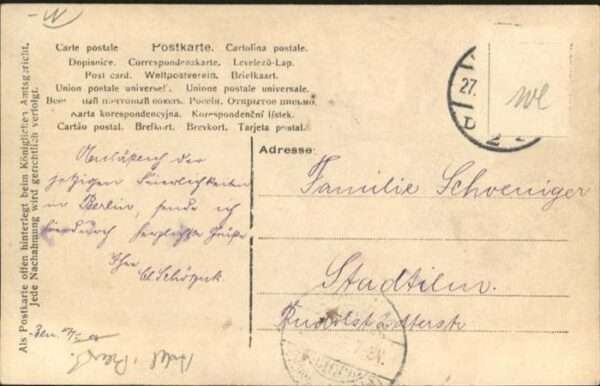 Carte postale Postkarte. Cartolina postale.
Dopisnice. Correspondenzkarte. Levelező-Lap.
Post card. Weltpostverein. Briefkaart.
Union postale universelle. Unione postale universale.
Россія. Открытое письмо.
Karta korespondencyjna. Korespondenční lístek.
Cartão postal. Brefkort. Brevkort. Tarjeta postal.
Als Postkarte offen hinterlegt beim Königlichen Amtsgericht.
Jede Nachahmung wird gerichtlich verfolgt.
Adresse:
27.
2
Anläßlich der
jetzigen Feierlichkeiten
in Berlin, sende ich
hierdurch herzlichste Grüße
Ihr
Familie Schoeniger
Stadtilm.
Rudolstädterstr